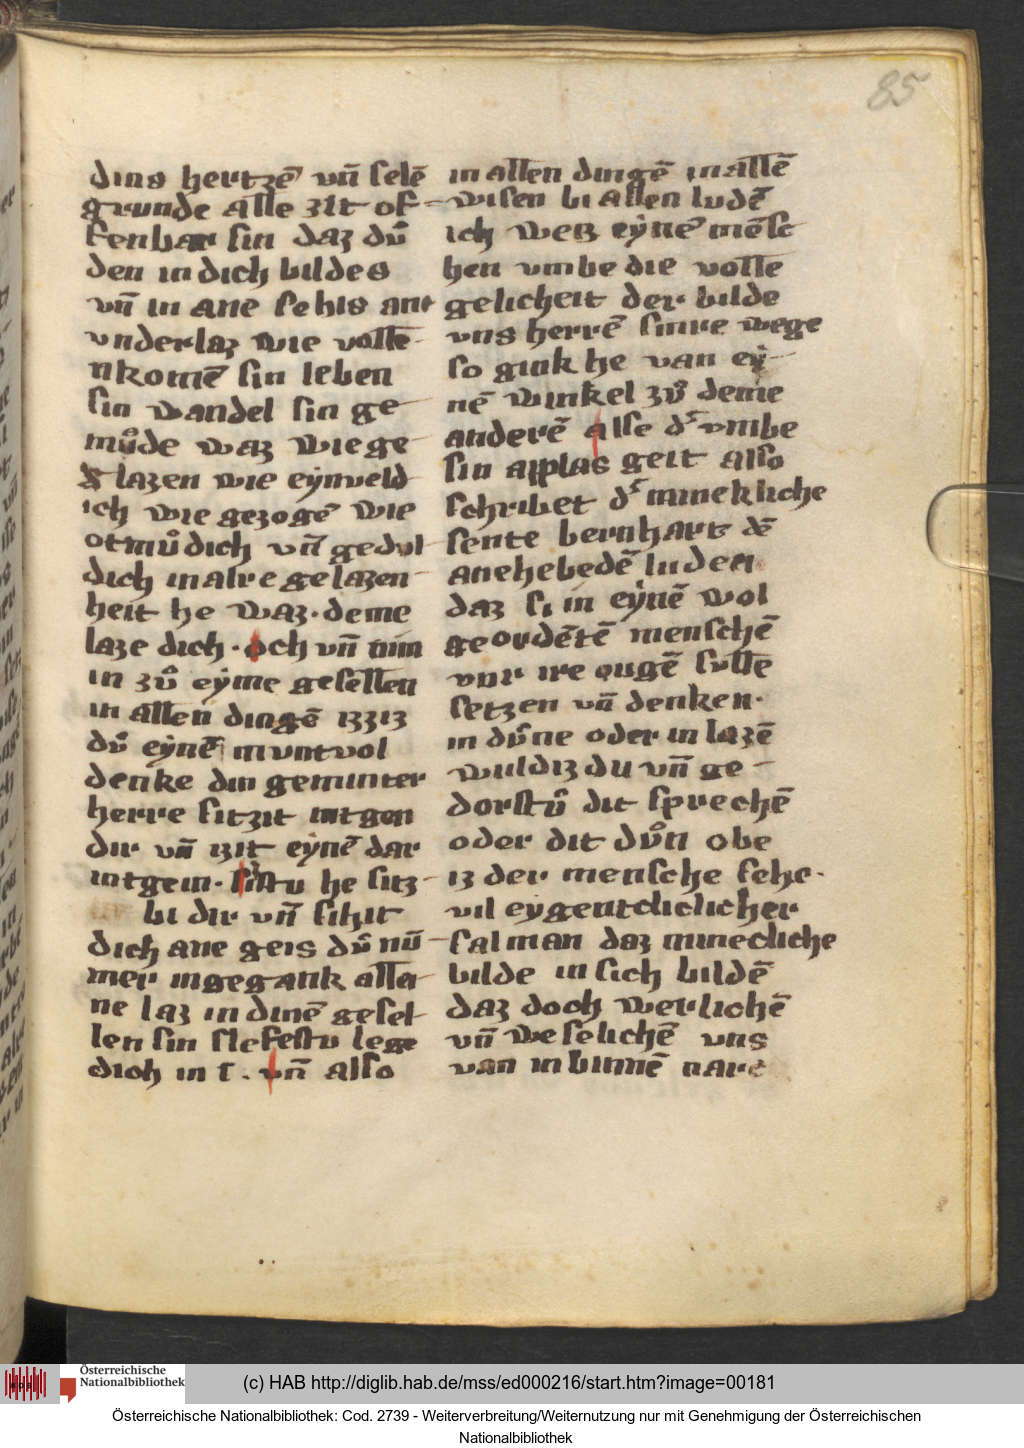 85
dins hertzē vn̄ selē
grunde alle zit of-
fenbar sin daz dv̊
den in dich bildes
vn̄ in ane sehis ane
vnderlaz wie volle-
nkomē sin leben
sin wandel sin ge-
mv̊de waz wie ge-
lazen wie eẏnveld
ich wie gezogē wie
otmv̊dich vn̄ gedvl-
dich in alre gelazen-
heit he waz. deme
laze dich. och vn̄ nim
in zv̊ eẏme gesellen
in allen dingē izziz
dv̊ eẏnē mvntvol
denke din geminter
herre sitzit intgen
dir vn̄ izit eẏnē dar
intgein. sistu he sitz-
bi dir vn̄ sihit
dich ane geis dv̊ nv̄-
mer ingegank alle-
ne laz in dinē gesel-
len sin slefestv lege
dich in s. vn̄ also
in allen dingē in allē
wisen bi allen ludē
ich weis eẏnē mēsc
hen vmbe die volle
gelicheit der bilde
vns herrē sinre wege
so gink he van eẏ-
nē winkel zv̊ deme
anderē alse dʳ vmbe
sin applas geit also
schribet dʳ minekliche
sente bernhart dē
anehebedē luden
daz si in eẏnē wol
geordētē menschē
vur ire ougē sulle
setzen vn̄ denken.
in dv̊ne oder in lazē
wuldiz du vn̄ ge-
dorstv̊ dit sprechē
oder dit dv̊n obe
iz der mensche sehe.
vil eẏgentclicliche​r
sal man daz minecliche
bilde in sich bildē
daz doch werlichē
vn̄ weselichē vns
van in binnē nare
Österreichische
Nationalbibliothek
(c) HAB http://diglib.hab.de/mss/ed000216/start.htm?image=00181
Österreichische Nationalbibliothek: Cod. 2739 - Weiterverbreitung/Weiternutzung nur mit Genehmigung der Österreichischen
Nationalbibliothek